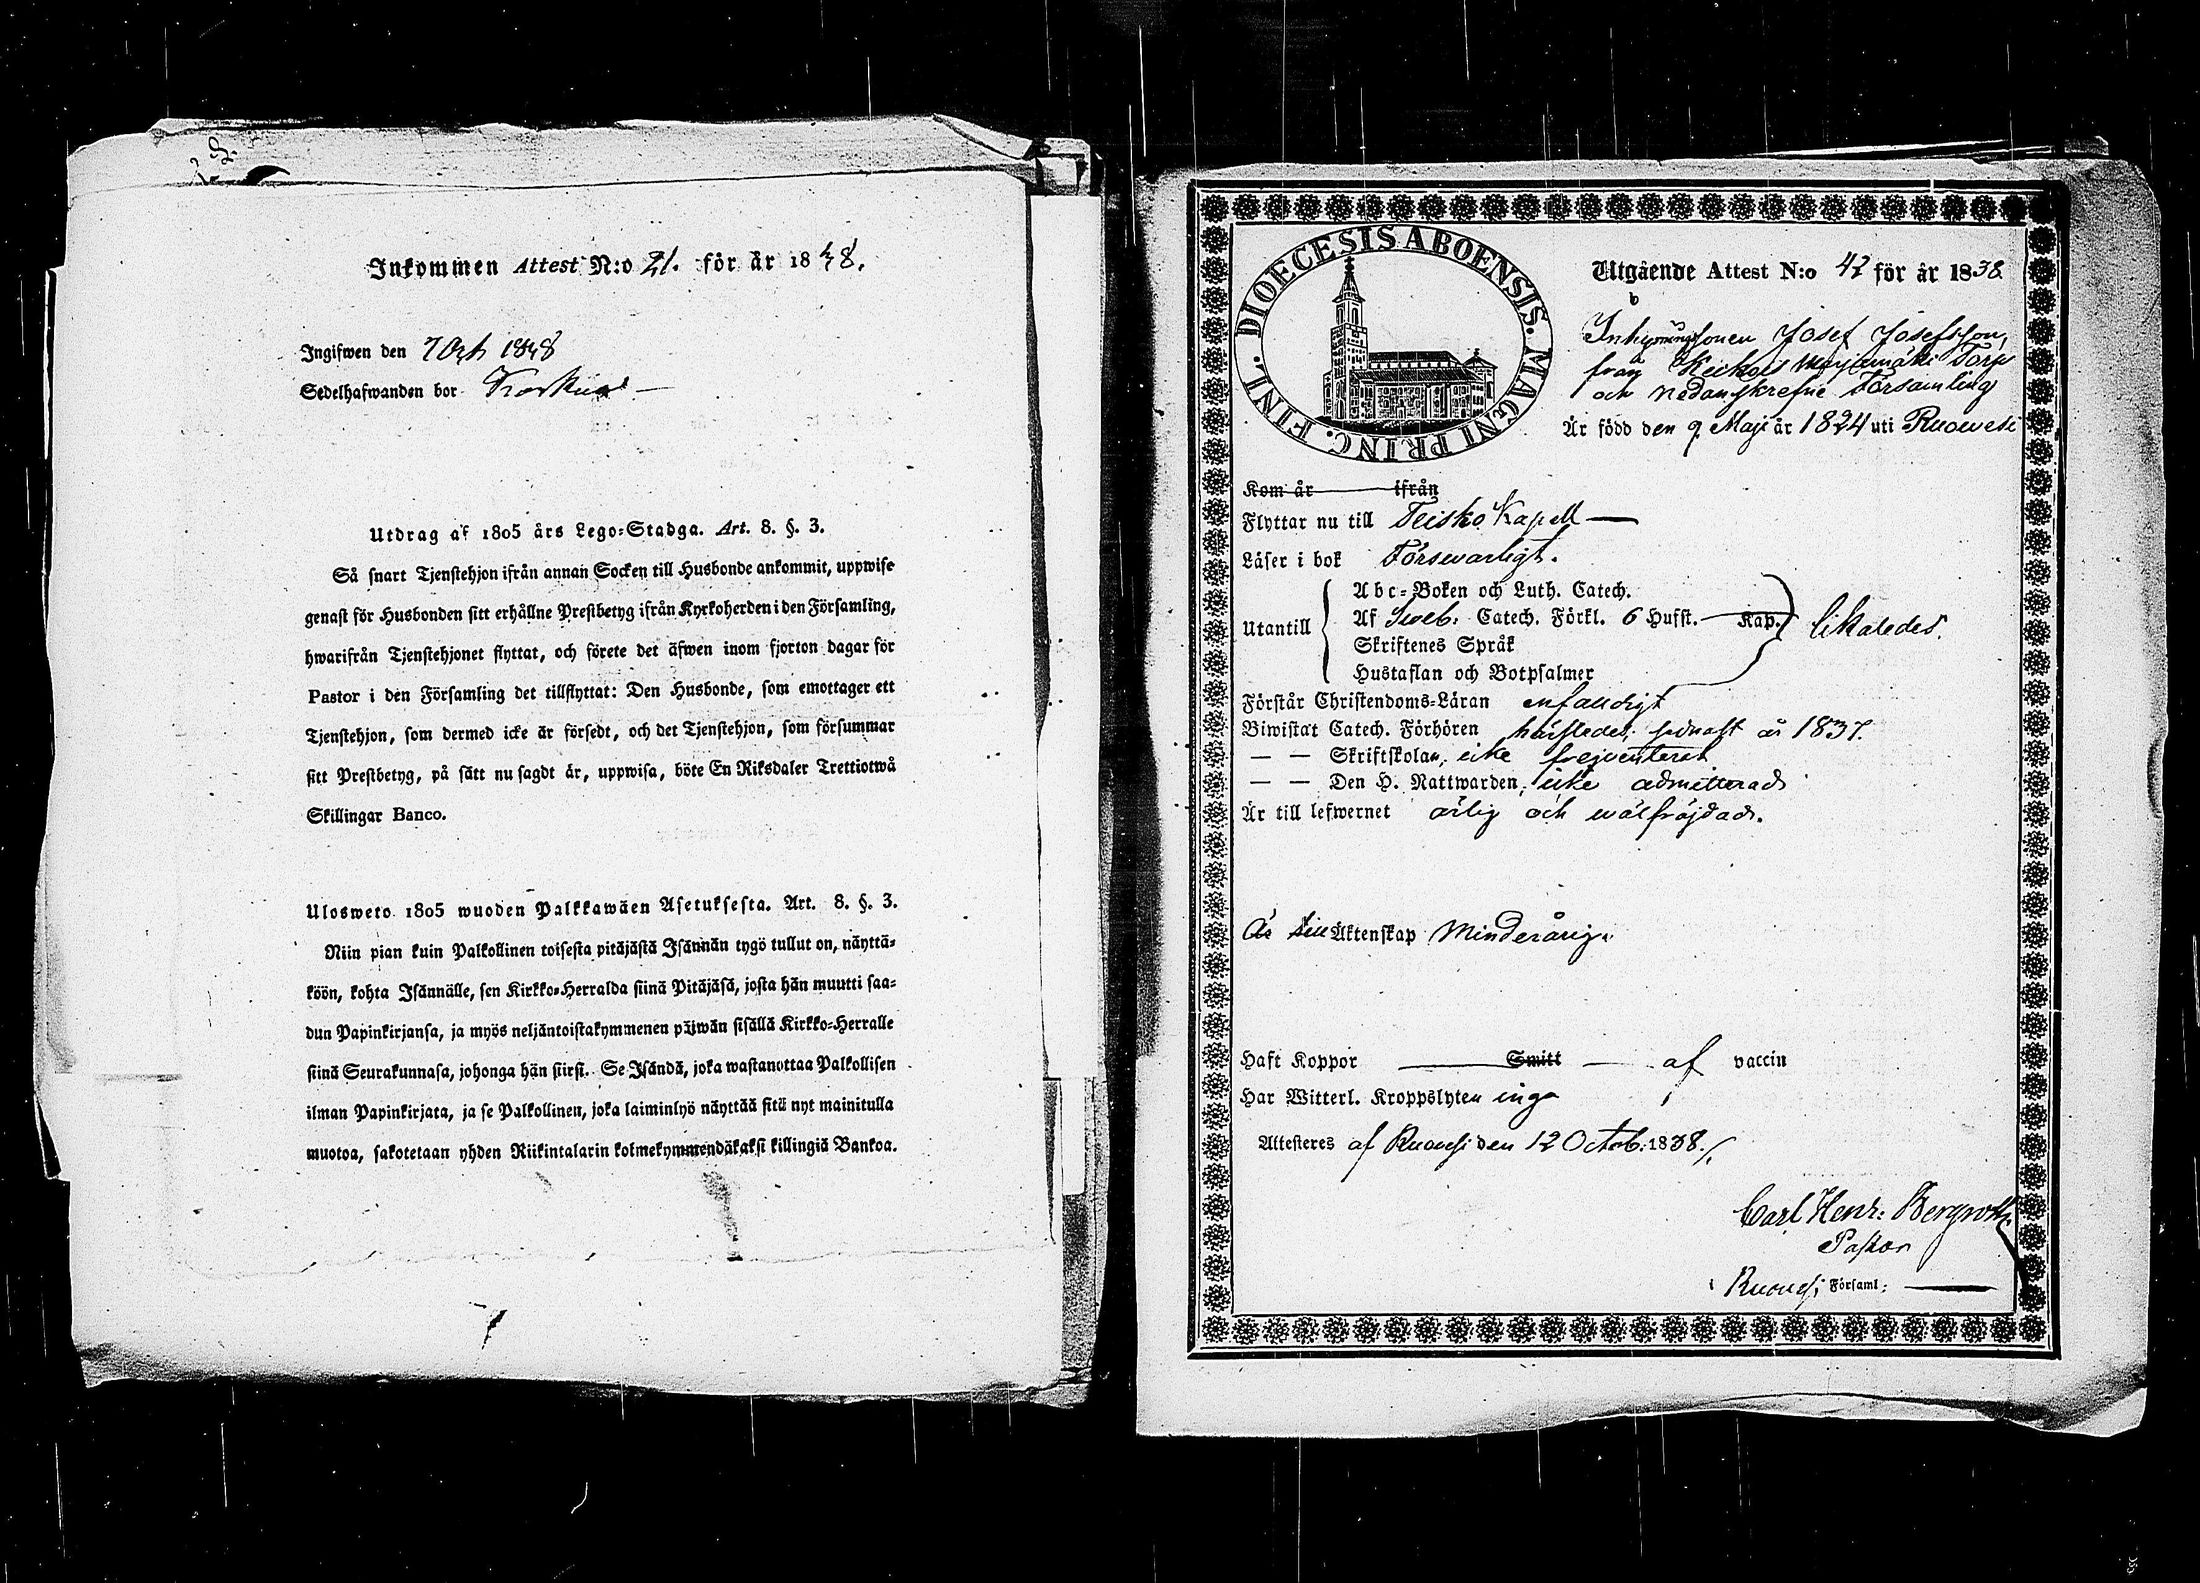 Inkommen Attest N:o 21. för år 1848.
Ingifwen den 7 Octb 1848
Sedelhafwanden bor
Utdrag af 1805 års Lego-Stadga. Art. 8. §. 3.
Så snart Tjenstehjon ifrån annan Socken till Husbonde ankommit, uppwise
genast för Husbonden sitt erhållne Prestbetyg ifrån Kyrkoherden i den Församling,
hwarifrån Tjenstehjonet flyttat, och förete det äfwen inom fjorton dagar för
Pastor i den Församling det tillflyttat: Den Husbonde, som emottager ett
Tjenstehjon, som dermed icke är försedt, och det Tjenstehjon, som försummar
sitt Prestbetyg, på sätt nu sagdt är, uppwisa, böte En Riksdaler Trettiotwå
Skillingar Banco.
Ulosweto 1805 wuoden Palkkawäen Asetuksesta. Art. 8. §. 3.
Niin pian kuin Palkollinen toisesta pitäjästä Isännän tygö tullut on, näyttä-
köön, kohta Isännälle, sen Kirkko-Herralda siinä Pitäjäsä, josta hän muutti saa-
dun Papinkirjansa, ja myös neljäntoistakymmenen päiwän sisällä Kirkko-Herralle
siinä Seurakunnasa, johonga hän siirsi. Se Isändä, joka wastanottaa Palkollisen
ilman Papinkirjata, ja se Palkollinen, joka laiminlyö näyttää sitä nyt mainitulla
muotoa, sakotetaan yhden Riikintalarin kolmekymmendäkaksi killingiä Bankoa.
DIOECESIS ABOENSIS. MAGNI PRINC. FINL.
Utgående Attest N:o 42 för år 1838
Inhysingsonen Josef Josefsson,
från Keckois Marjamäki Torp
och nedanskrefne Församling
Är född den 9 Maji år 1824 uti Ruowesi
Kom år ifrån
Flyttar nu till Teisko Kapell —
Läser i bok Förswarligt.
Abc-Boken och Luth. Catech.
Utantill Af Sweb. Catech. Förkl. 6 Hufst. — Kap. likaledes.
Skriftenes Språk
Hustaflan och Botpsalmer
Förstår Christendoms-Läran enfaldigt
Biwistat Catech. Förhören husfledes, sednast år 1837.
— — Skriftskolan, icke freqventerat
— — Den H. Nattwarden, icke admitterad
Är till lefwernet ärlig och wälfräjdad.
Är till Äktenskap Minderårig.
Haft Koppor — Smitt — af vaccin
Har Witterl. Kroppslyten inga
Attesteres af Ruowesi den 12 Octob. 1838.
Carl Henr: Bergroth
Pastor
i Ruowesi Församl: —